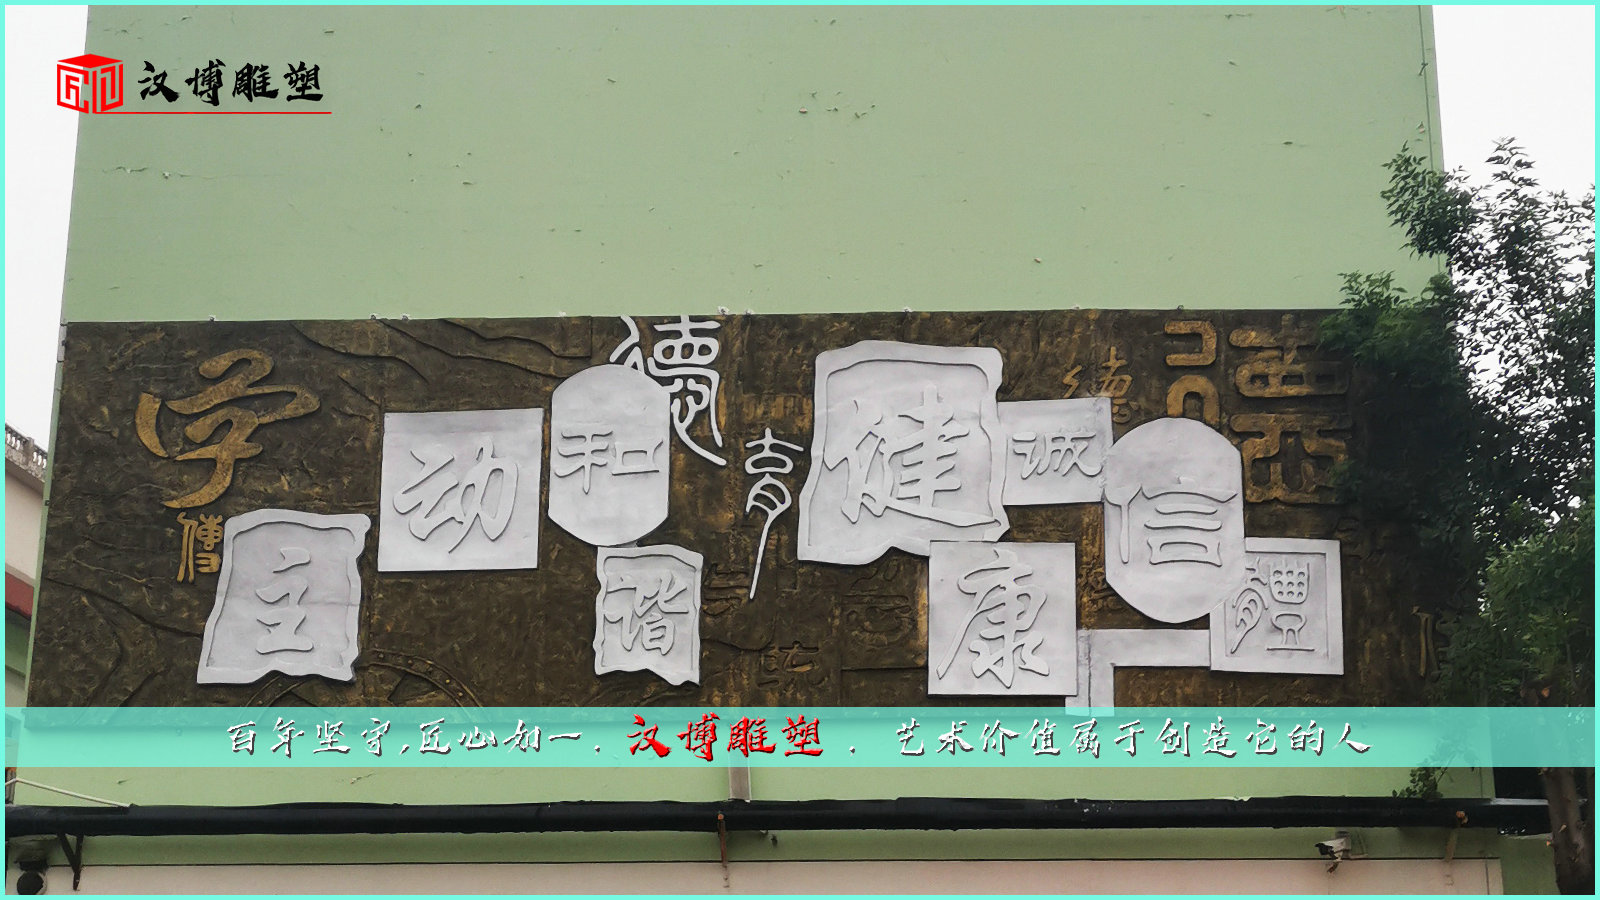 汉博雕塑
学 德 德
傳 主 动 和 谐 育 健 康 诚 信 體
百年坚守,匠心如一. 汉博雕塑. 艺术价值属于创造它的人